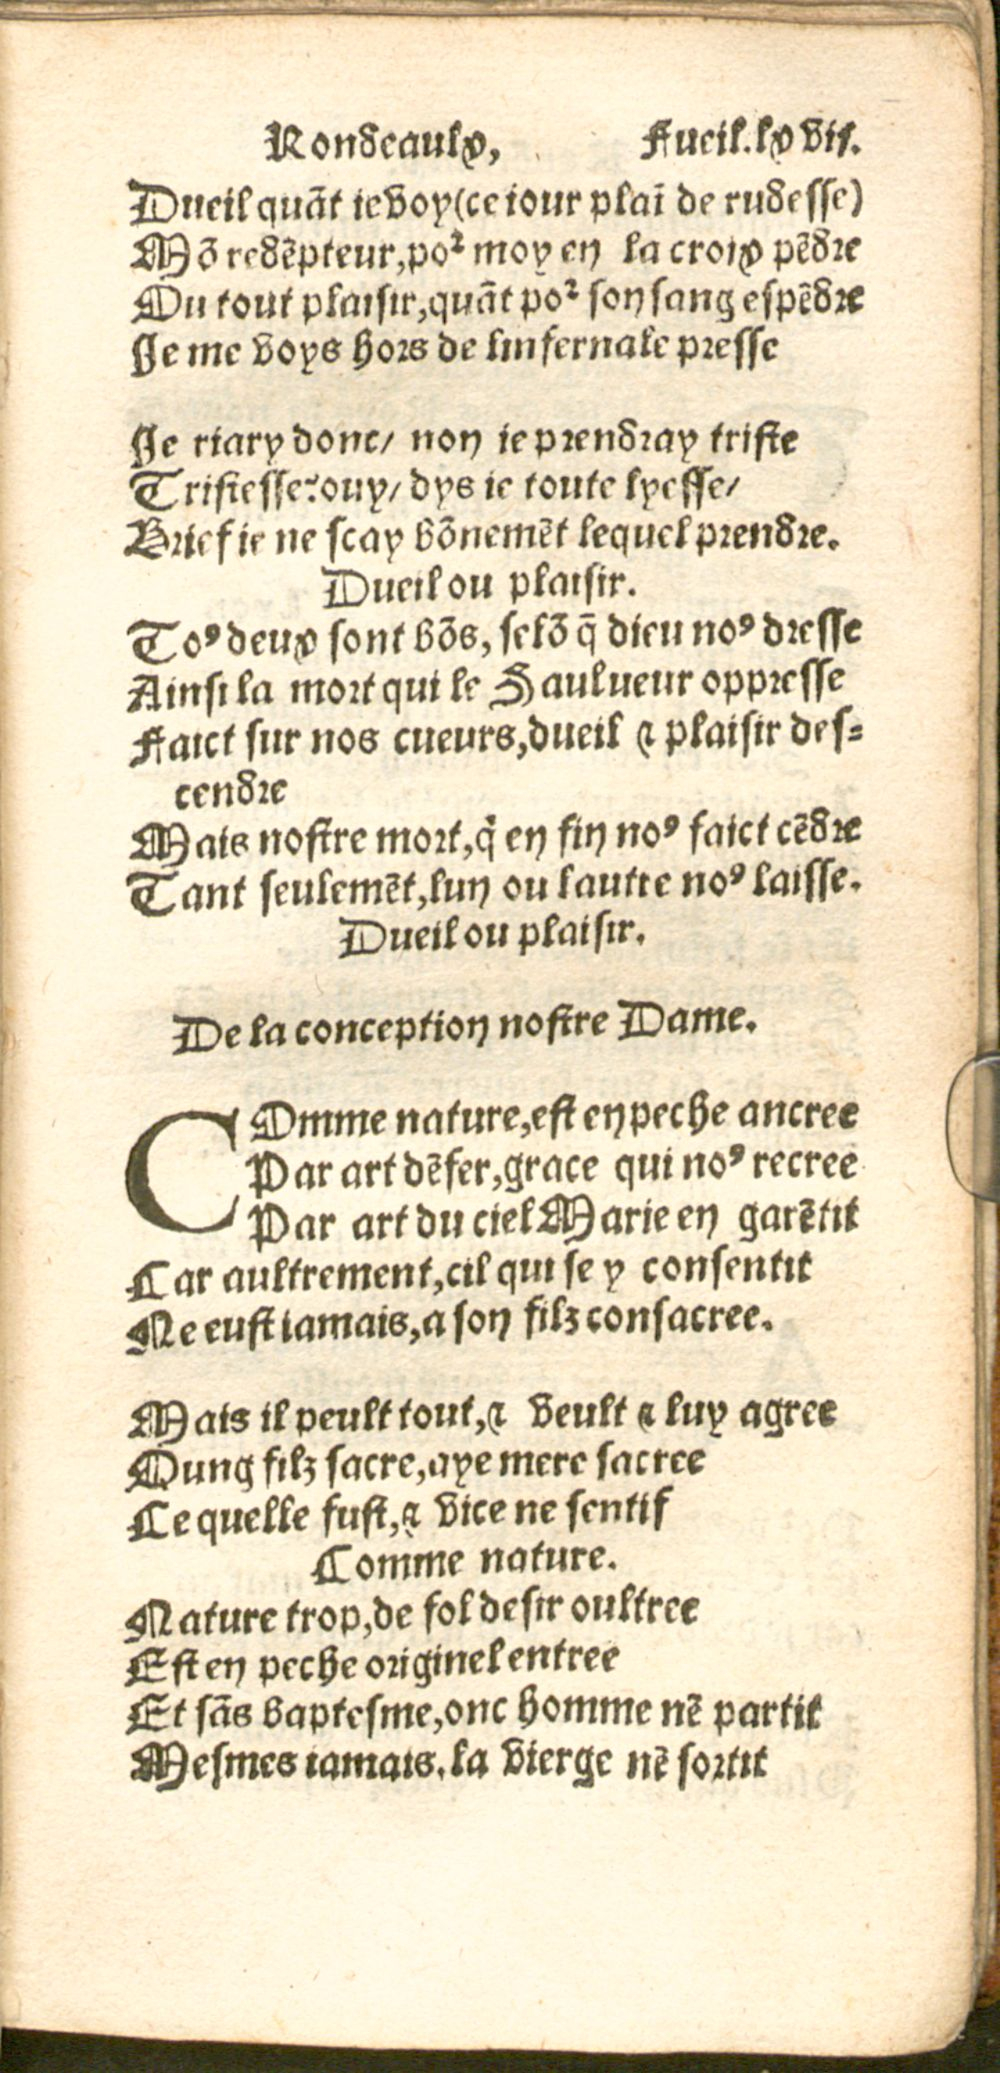 Rondeaulx, Fueil.lxvii.
Dueil quãt ie voy (ce iour plaĩ de rudesse)
Mõ redẽpteur, poꝛ moy en la croix pẽdre
Ou tout plaisir, quãt poꝛ son sang espẽdre
Je me voys hors de linfernale presse
Je riary donc/ non ie prendray triste
Tristesse? ouy/ dys ie toute lyesse/
Brief ie ne scay bõnemẽt lequel prendre.
Dueil ou plaisir.
Toꝰ deux sont bõs, selõ q̃ dieu noꝰ dresse
Ainsi la mort qui le Saulueur oppresse
Faict sur nos cueurs, dueil ⁊ plaisir des-
cendre
Mais nostre mort, q̇ en fin noꝰ faict cẽdre
Tant seulemẽt, lun ou lautre noꝰ laisse.
Dueil ou plaisir.
De la conception nostre Dame.
COmme nature, est en peche ancree
Par art dẽfer, grace qui noꝰ recree
Par art du ciel Marie en garẽtit
Car aultrement, cil qui se y consentit
Ne eust iamais, a son filz consacree.
Mais il peult tout, ⁊ veult ⁊ luy agree
Qung filz sacre, aye mere sacree
Ce quelle fust, ⁊ vice ne sentif
Comme nature.
Nature trop, de fol desir oultree
Est en peche originel entree
Et sãs baptesme, onc homme nẽ partit
Mesmes iamais. la vierge nẽ sortit